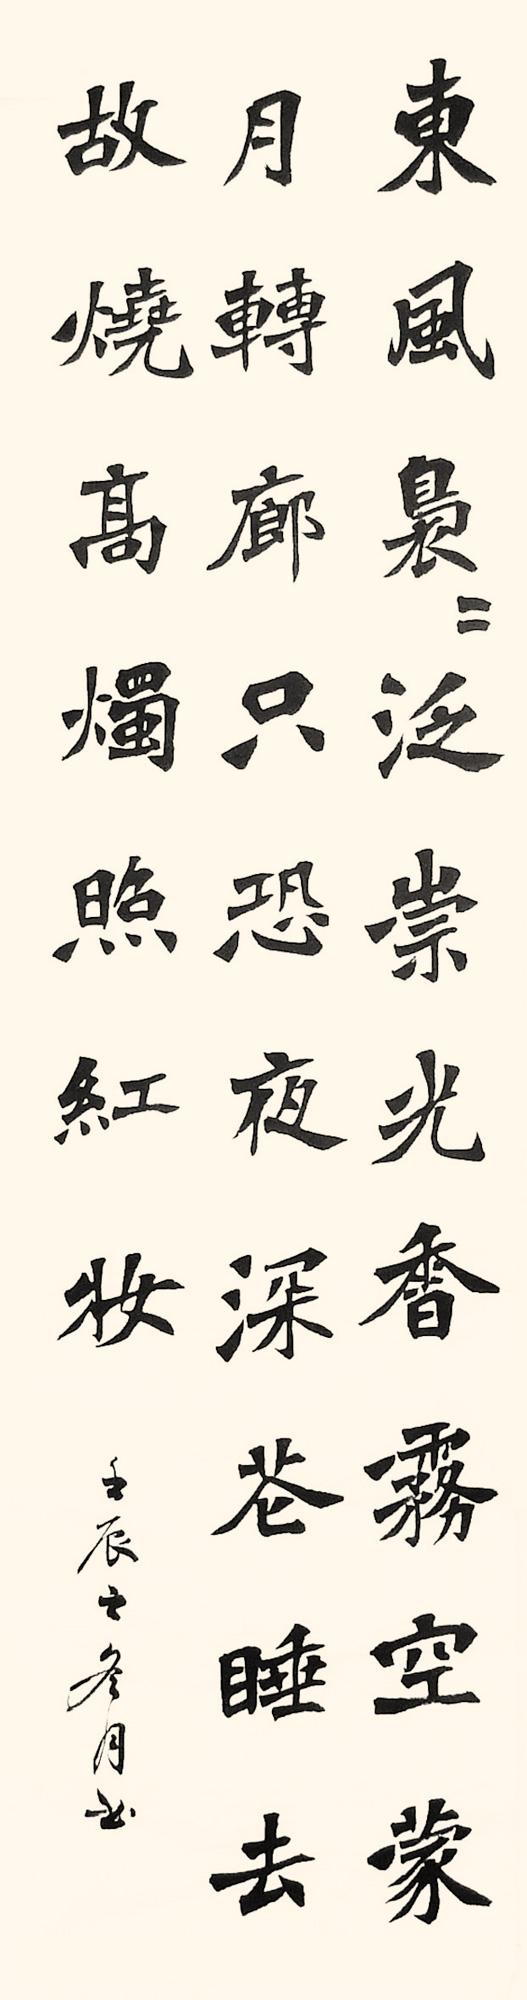 東風裊=泛崇光香霧空蒙
月轉廊只恐夜深花睡去
故燒高燭照紅妝
壬辰之冬月書